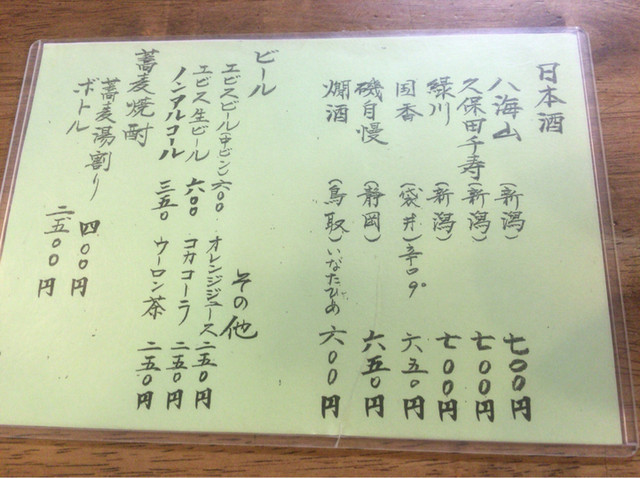 日本酒
八海山 (新潟) 七〇〇円
久保田千寿 (新潟) 七〇〇円
緑川 (新潟) 七〇〇円
国香 (袋井) 辛口 六五〇円
磯自慢 (静岡) 六五〇円
燗酒 (鳥取) いなたひめ 六〇〇円
ビール
エビスビール(中ビン) 六〇〇
エビス生ビール 六〇〇
ノンアルコール 三五〇
その他
オレンジジュース 二五〇円
コカコーラ 二五〇円
ウーロン茶 二五〇円
蕎麦焼酎
蕎麦湯割り 四〇〇円
ボトル 二五〇〇円